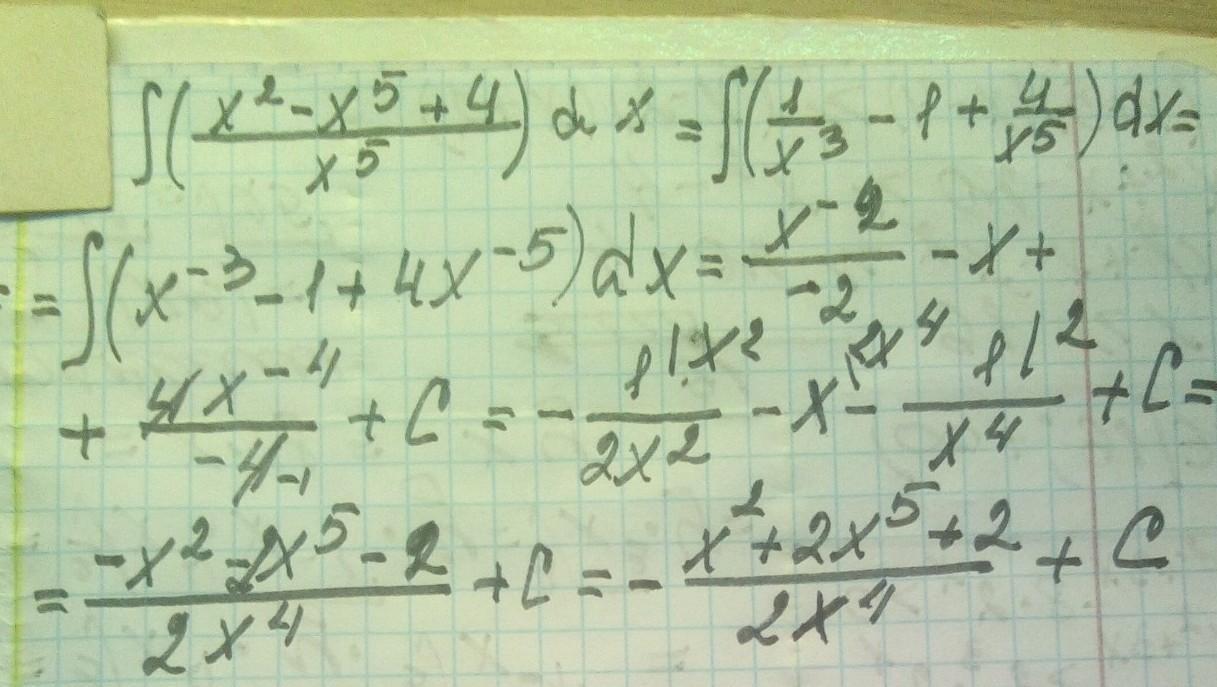 ∫((x² − x⁵ + 4)/x⁵) dx = ∫(1/x³ − 1 + 4/x⁵) dx =
= ∫(x⁻³ − 1 + 4x⁻⁵) dx = x⁻²/−2 − x +
+ 4x⁻⁴/−4 + C = − 1/(2x²) − x − 1/x⁴ + C =
= (−x² − 2x⁵ − 2)/(2x⁴) + C = − (x² + 2x⁵ + 2)/(2x⁴) + C